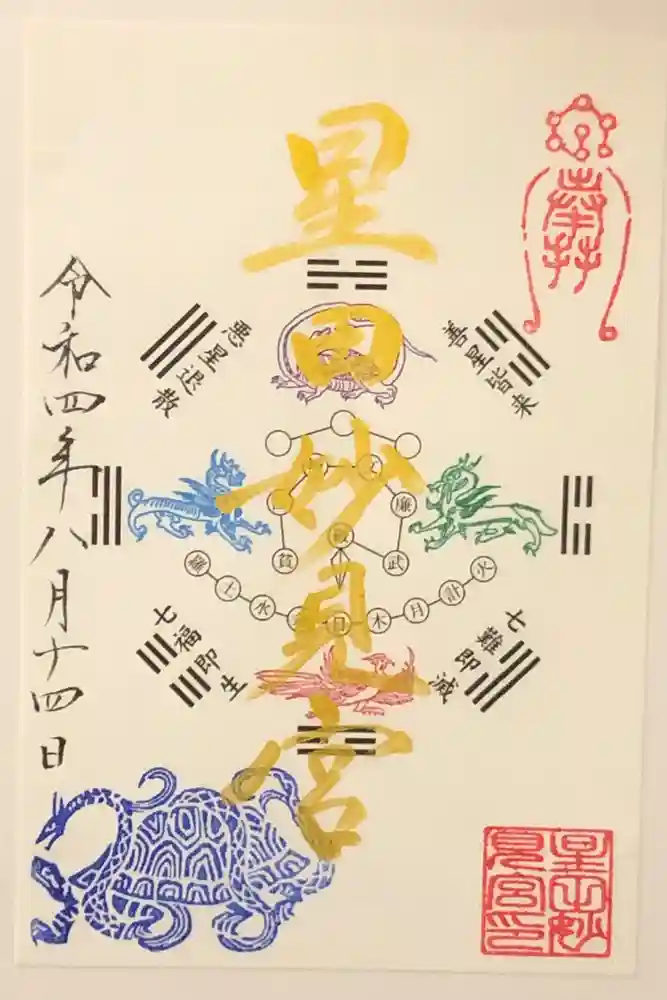 星田妙見宮
令和四年八月十四日
善星皆来
悪星退散
七難即滅
七福即生
廉
武
貪
羅
土
水
日
木
月
計
火
星田妙
見宮印